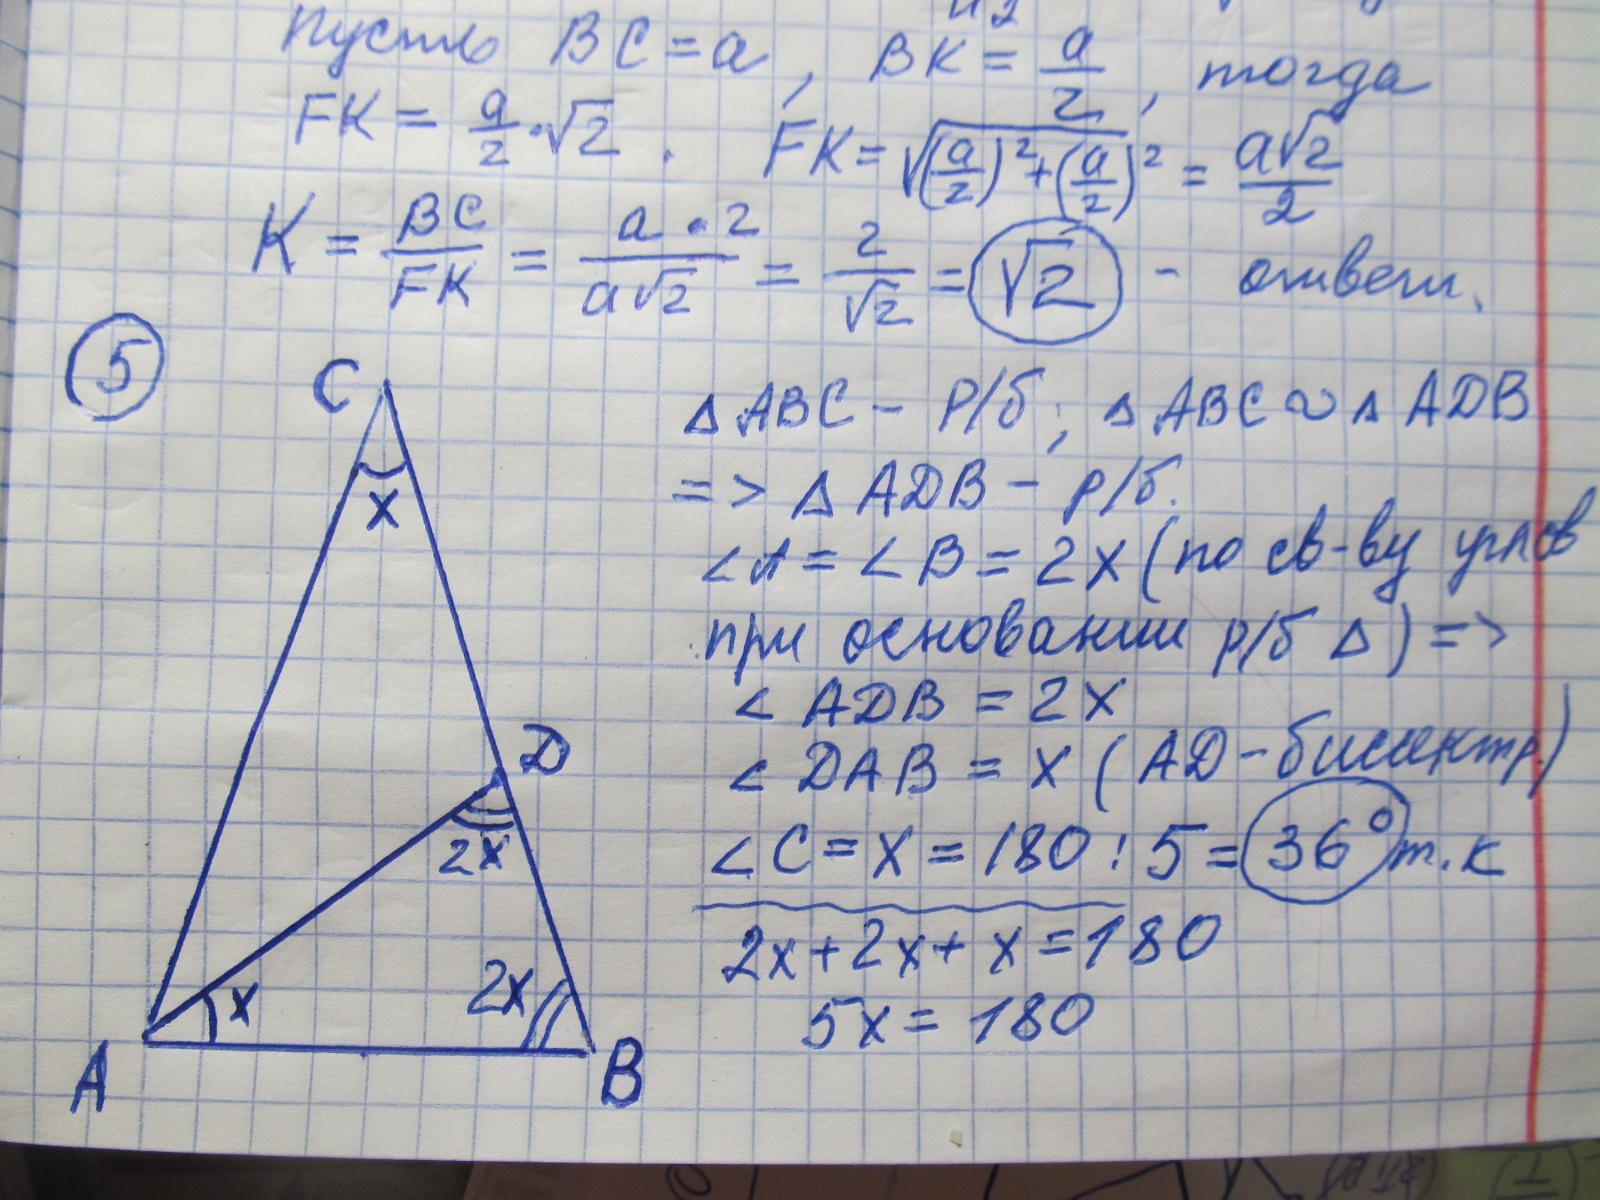 Пусть BC = a, BK = a/2, тогда
FK = a/2 · √2. FK = √((a/2)² + (a/2)²) = a√2/2
K = BC/FK = a·2/a√2 = 2/√2 = √2 - ответ.
5
C
x
D
2x
x
2x
A
B
Δ ABC - р/б; Δ ABC ∾ Δ ADB
=> Δ ADB - р/б.
∠A = ∠B = 2x (по св-ву углов
при основании р/б Δ) =>
∠ ADB = 2x
∠ DAB = x (AD - биссектр.)
∠C = x = 180 : 5 = 36° т.к
2x + 2x + x = 180
5x = 180